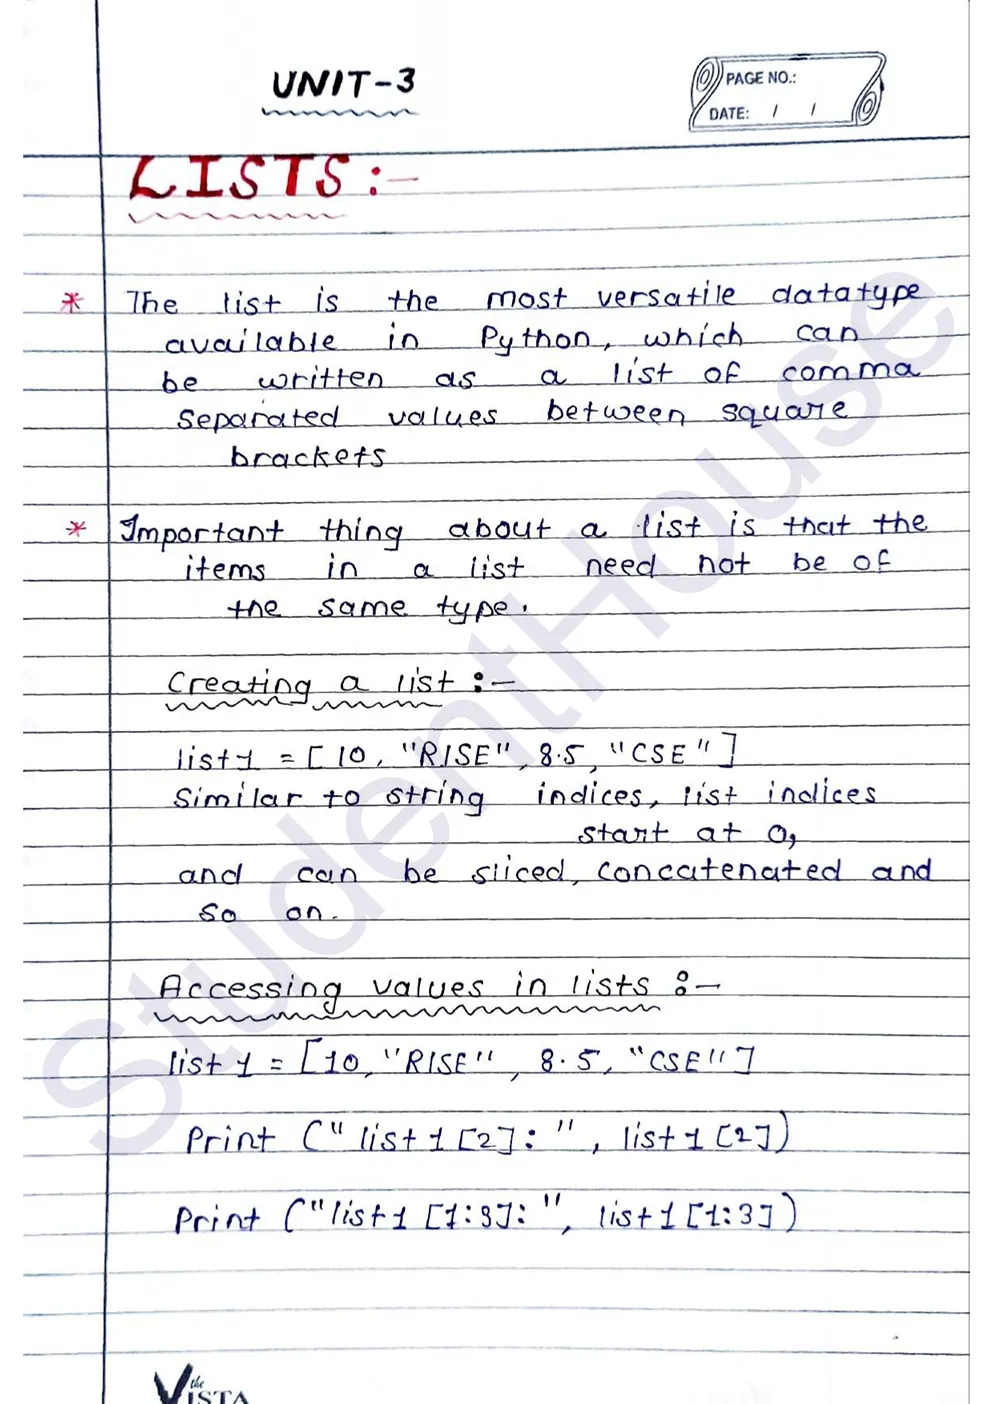 UNIT-3
PAGE NO.:
DATE: / /
LISTS:-
* The list is the most versatile datatype
available in Python, which can
be written as a list of comma
separated values between square
brackets
* Important thing about a list is that the
items in a list need not be of
the same type.
Creating a list :-
list1 = [10, "RISE", 8.5, "CSE"]
Similar to string indices, list indices
start at 0,
and can be sliced, concatenated and
so on.
Accessing values in lists :-
list1 = [10, "RISE", 8.5, "CSE"]
Print ("list1[2]:", list1[2])
Print ("list1[1:3]:", list1[1:3])
StudentHouse
the
VISTA